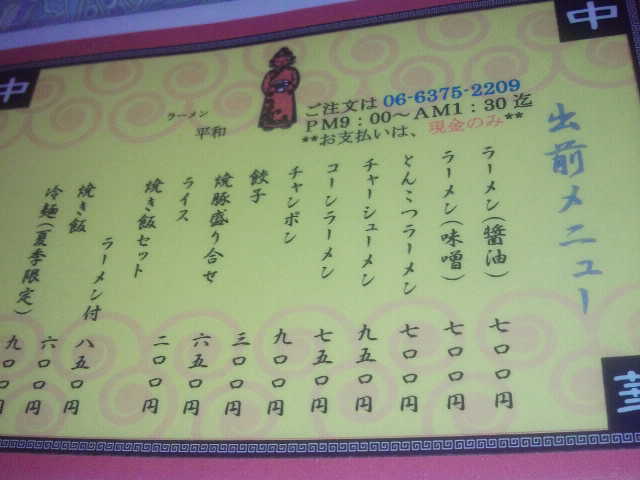 中
中
出前メニュー
ご注文は 06-6375-2209
PM9:00～AM1:30迄
**お支払いは、現金のみ**
ラーメン
平和
ラーメン(醤油) 七〇〇円
ラーメン(味噌) 七〇〇円
とんこつラーメン 七〇〇円
チャーシューメン 九五〇円
コーンラーメン 七五〇円
チャンポン 九〇〇円
餃子 三〇〇円
焼豚盛り合せ 六五〇円
ライス 二〇〇円
焼き飯セット
ラーメン付 八五〇円
焼き飯 六〇〇円
冷麺(夏季限定) 九〇〇円
華